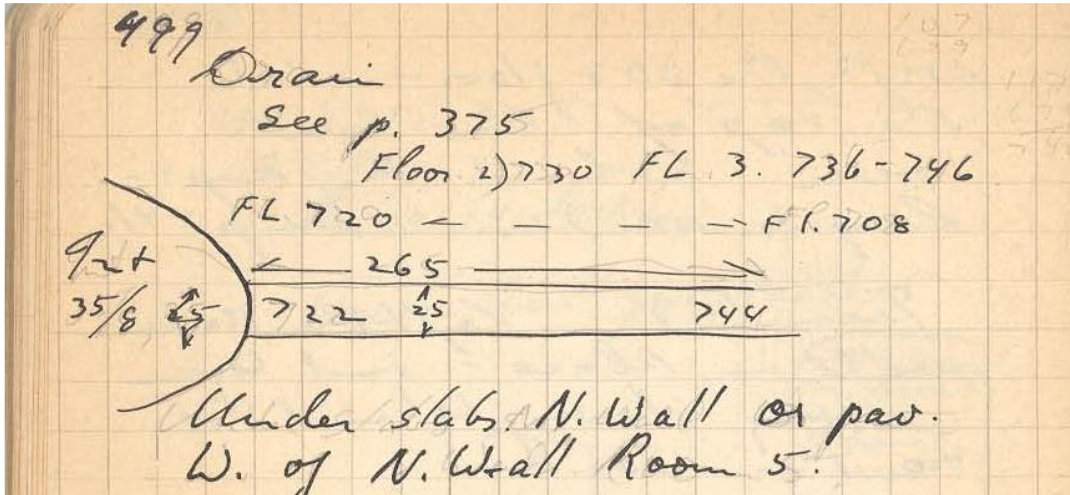 499
Drain
See p. 375
Floor 2) 730 FL 3. 736-746
FL 720 — — — — Fl. 708
265
35/8 25 722 25 744
Under slabs. N. Wall or pav.
W. of N. Wall Room 5.